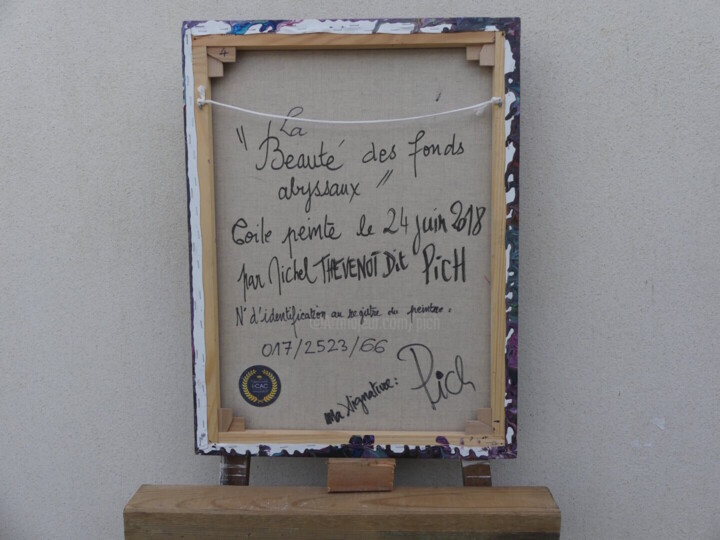 4
" La
Beauté des fonds
abyssaux "
Toile peinte le 24 juin 2018
par Michel THEVENOT Dit PicH
N° d'identification au registre du peintre :
017/2523/66
CAC
Ma signature : Pich